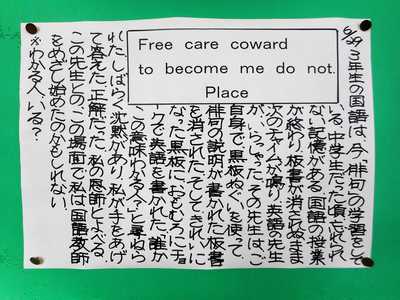 6/29 3年生の国語は、今、俳句の学習をして
いる。中学生だった頃、忘れられ
ない記憶がある。国語の授業
が終わり、板書が消されぬまま
次のチャイムが鳴り、英語の先生
が、いらっしゃった。その先生は、ご
自身で、黒板ぬぐいを使って、
俳句の説明が書かれた板書
を消された。そしてきれいに
なった黒板に、おもむろにチョ
ークで英語を書かれた。「誰か
この意味わかる人?」と尋ねら
れた。しばらく沈黙があり、私が手をあげ
て答えた。正解だった。私の恩師とよべる、
この先生との、この場面で、私は国語教師
をめざし始めたのかもしれない。
※わかる人、いる?
Free care coward
to become me do not.
Place